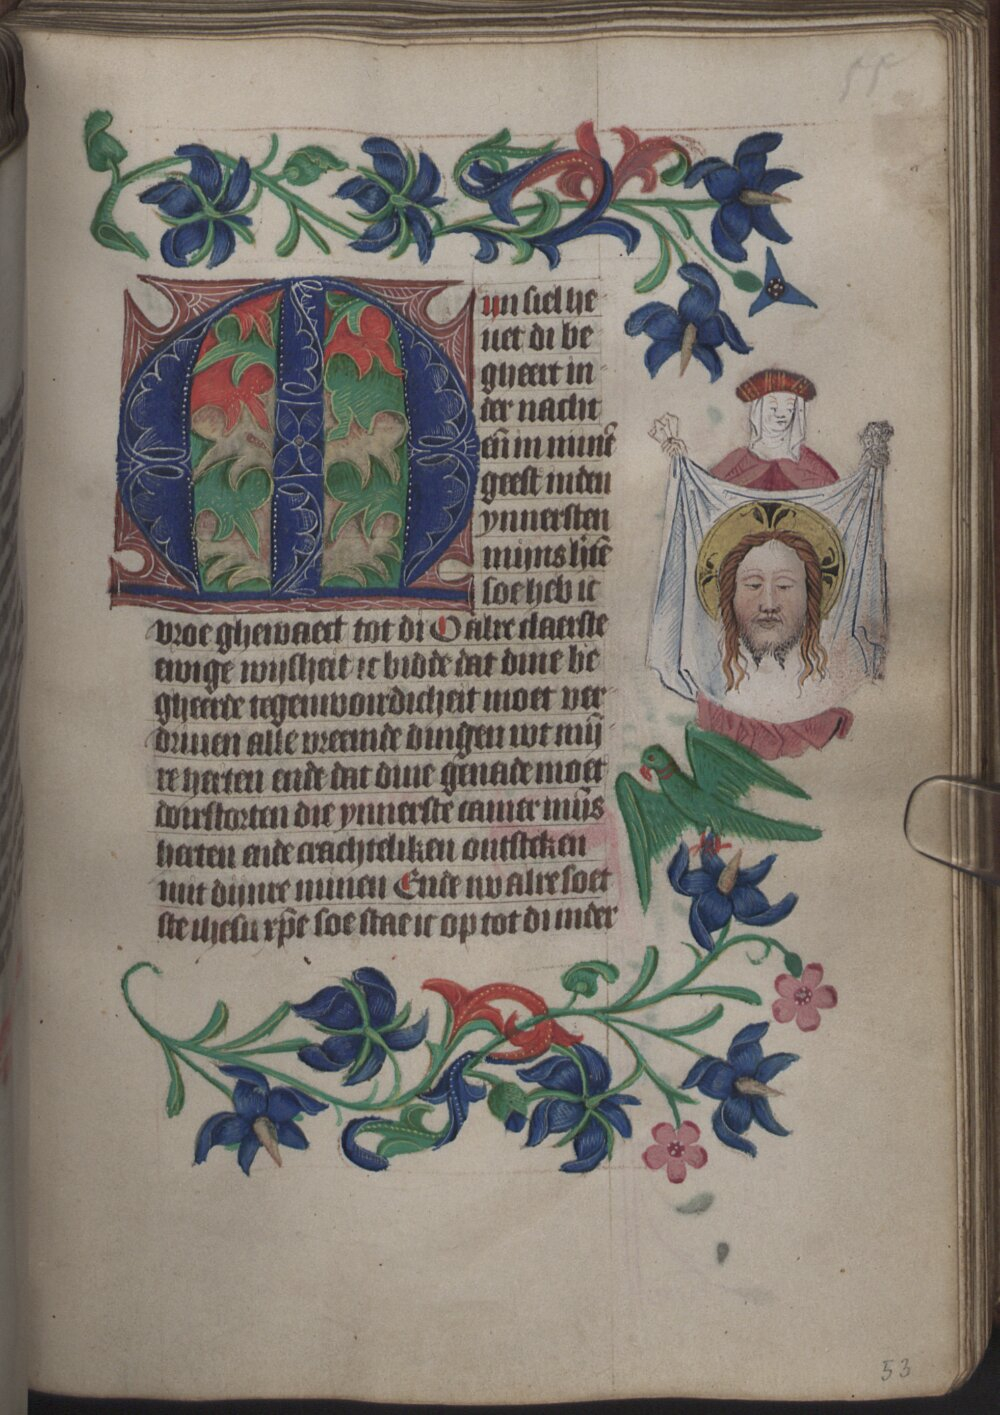 55
Mijn siel he
uet di be
gheert in
der nacht
en̄ in minē
geest in den
ynnersten
mijns lijfs
soe heb ic
vroe ghewaect tot di O alre claerste
ewige wijsheit ic bidde dat dine be
gheerde tegenwoirdicheit moet ver
driuen alle vreemde dingen wt mij
re herten ende dat dine genade moet
doirstorten die ynnerste camer mijs
herten ende crachteliken ontsteken
mit dijnre minnen Ende nv alre soet
ste ihesu xp̄e soe stae ic op tot di in der
53